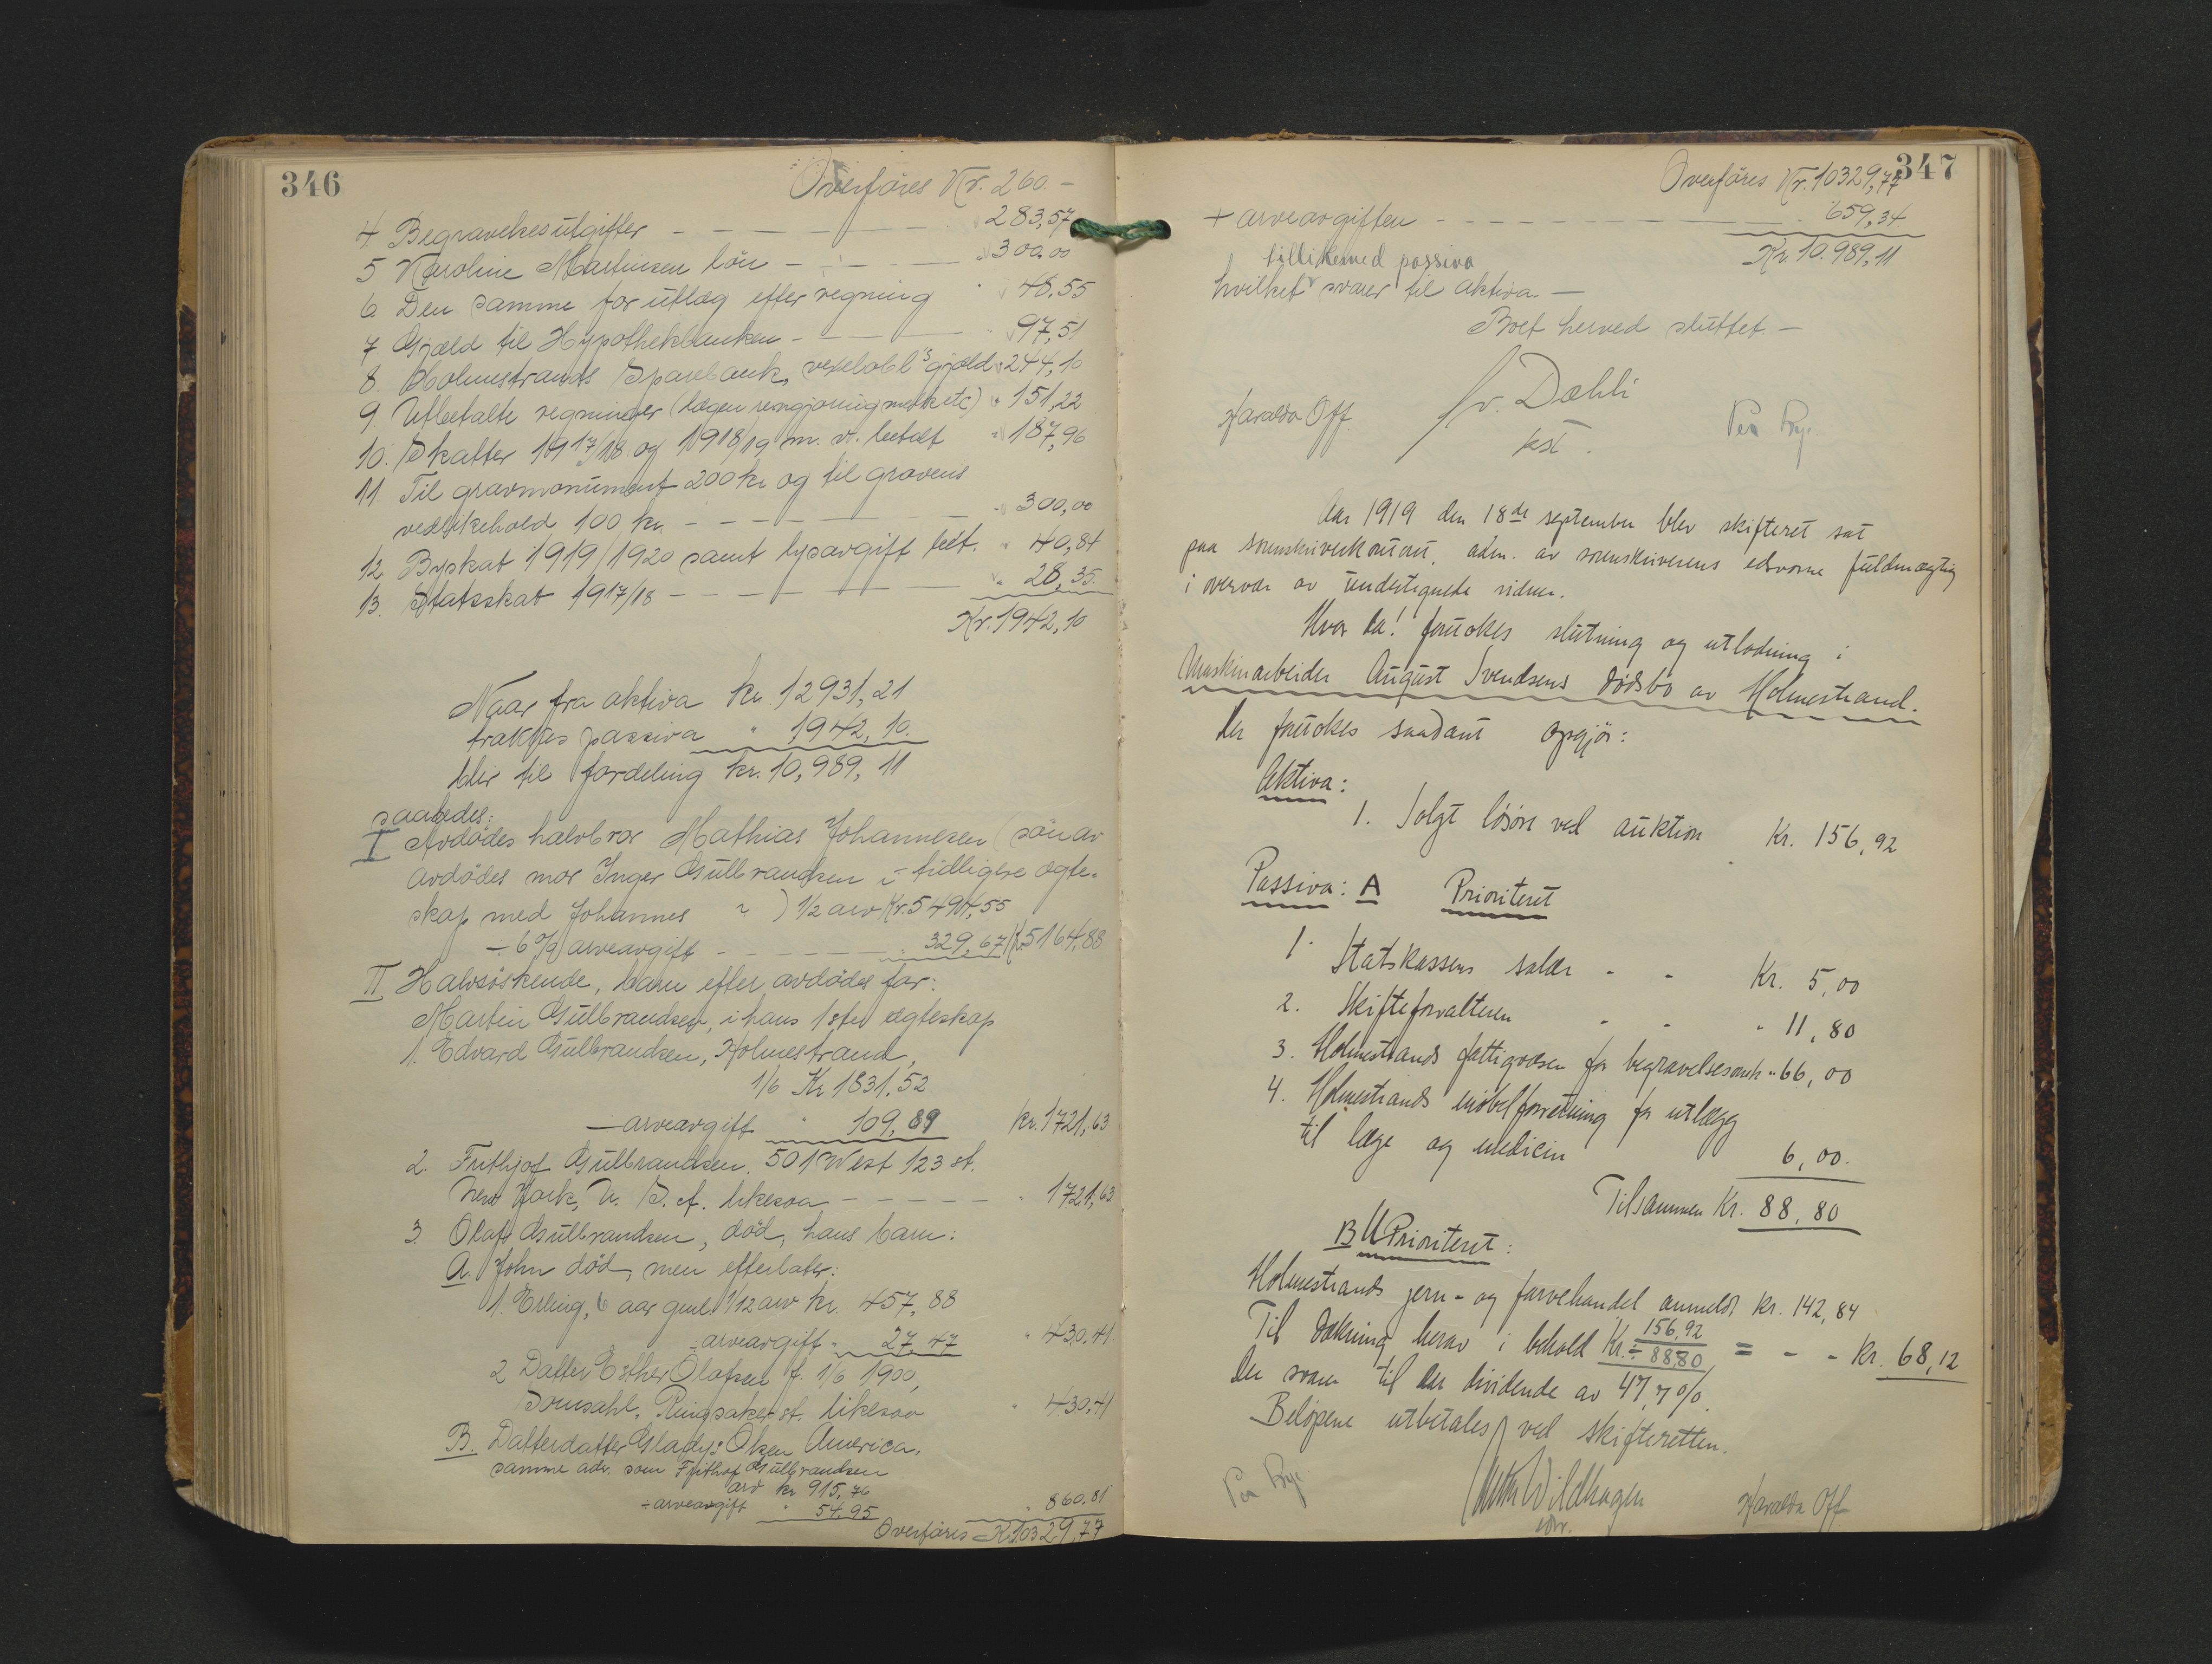 346
Overføres Kr. 260.-
4. Begravelsesutgifter - - - - - 283,57
5 Karoline Martinsen lön - - - - " 300.00
6. Den samme for utlæg efter regning " 48.55
7 Gjæld til Hypothekbanken - - - " 97,51
8. Holmestrands Sparebank, vexelobl's gjæld " 244,10
9. Utbetalte regninger (lægen rengjøring merk etc) " 151,22
10. Skatter 1917/18 og 1918/19 m. v. betalt " 187,96
11. Til gravmonument 200 kr og til gravens
vedlikehold 100 kr. - - - - - " 300,00
12. Byskat 1919/1920 samt lysavgift bet. " 40,84
13. Statsskat 1917/18 - - - - " 28,35.
Kr. 1942,10
Naar fra aktiva kr. 12931,21
trækkes passiva " 1942,10.
blir til fordeling kr. 10,989,11
saaledes:
I Avdødes halvbror Mathias Johannesen (sön av
avdødes mor Inger Gulbrandsen i tidligere ægte-
skap med Johannes ? ) 1/2 arv Kr. 5494,55
÷ 6% arveavgift - - - - 329,67 Kr. 5164,88
II Halvsöskende, barn efter avdødes far:
Martin Gulbrandsen, i hans 1ste ægteskap
1. Edvard Gulbrandsen, Holmestrand,
1/6 Kr 1831.52
- arveavgift " 109,89 kr. 1721,63
2. Frithjof Gulbrandsen. 501 West 123 st.
New York, U. S. A. likesaa - - - - - " 1721,63
3. Olaf Gulbrandsen, död, hans barn:
A. John död, men efterlater:
1. Erling, 6 aar gml. 1/12 arv kr. 457,88
÷ arveavgift " 27,47 " 430.41.
2 Datter Esther Olafsen f. 1/6 1900,
Ringsaker st. likesaa " 430,41
B. Datterdatter Gladys Olsen America,
samme adr. som Frithjof Gulbrandsen
arv kr 915,76
÷ arveavgift " 54,95 " 860.81
Overføres Kr. 10329,77
347
Overføres Kr. 10329,77
+ arveavgiften - - - - - 659,34
Kr 10.989,11
tillikemed passiva
hvilket svarer til aktiva -
Boet herved sluttet. -
Dæhli
kst.
Haralda Off
Per Rye
Aar 1919 den 18de september blev skifteret sat
paa sorenskriverkontoret, adm. av sorenskriverens edsvorne fuldmægtig
i overvær av undertegnede vidner.
Hvor da! foretokes slutning og utlodning i
Maskinarbeider August Svendsens dødsbo av Holmestrand.
Der foretokes saadant opgjör:
Aktiva:
1. Solgt lösöre ved auktion Kr. 156,92
Passiva: A Prioritert
1. Statskassens salær - - Kr. 5,00
2. Skifteforvalteren - - " 11,80
3. Holmestrands fattigvæsen for begravelsesomk. " 66,00
4. Holmestrands möbelforretning for utlægg
til læge og medicin 6,00.
Tilsammen Kr. 88,80
B UPrioritert:
Holmestrands jern- og farvehandel anmeldt kr. 142,84
Til dækning herav i behold Kr. 156,92 ÷ 88,80 = - - Kr. 68,12
Der svarer til en dividende av 47,7%.
Belöpene utbetales ved skifteretten.
Per Rye
Wildhagen
edsv.
Haralda Off